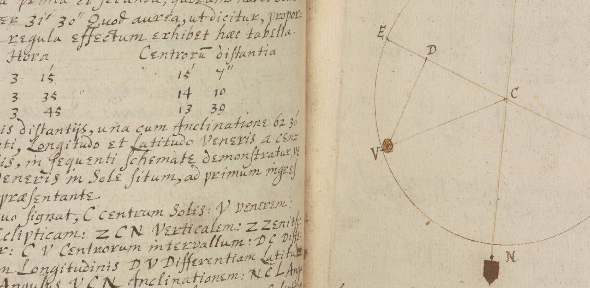 PER 31' 30" Quod aurea, ut dicitur, propor
regula effectum exhibet hæc tabella.
Hora Centrorū distantia
3 15 15' 7"
3 35 14 10
3 45 13 39
is distantijs, una cum Inclinatione 62 30
ti, Longitudo et Latitudo Veneris a cen
is, in sequenti schemate demonstratur
Veneris in Sole situm, ad primum ingres
præsentante.
uo signat, C centrum Solis: V Venerem:
clipticam: Z C N Verticalem: Z Zenith
r: C V Centrorum intervallum: D C Diff
Longitudinis D V Differentiam Latitu
Angulus V C N Inclinationem: N C L Ang
E
D
C
V
N